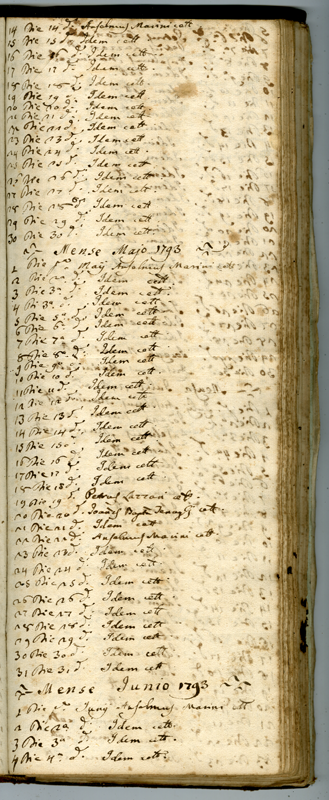 14 Die 14 d. Anselmus Marini cett
15 Die 15 d. Idem cett
16 Die 16 d. Idem cett
17 Die 17 d. Idem cett
18 Die 18 d. Idem cett
19 Die 19 d. Idem cett
20 Die 20 d. Idem cett
21 Die 21 d. Idem cett
22 Die 22 d. Idem cett
23 Die 23 d. Idem cett
24 Die 24 d. Idem cett
25 Die 25 d. Idem cett
26 Die 26 d. Idem cett
27 Die 27 d. Idem cett
28 Die 28 d. Idem cett
29 Die 29 d. Idem cett
30 Die 30 d. Idem cett
Mense Majo 1793
1 Die p.ª Maij Anselmus Marini cett
2 Die 2ª d. Idem cett
3 Die 3ª d. Idem cett
4 Die 4ª d. Idem cett
5 Die 5ª d. Idem cett
6 Die 6ª d. Idem cett
7 Die 7ª d. Idem cett
8 Die 8ª d. Idem cett
9 Die 9ª d. Idem cett
10 Die 10 d. Idem cett
11 Die 11 d. Idem cett
12 Die 12 d. Idem cett
13 Die 13 d. Idem cett
14 Die 14 d. Idem cett
15 Die 15 d. Idem cett
16 Die 16 d. Idem cett
17 Die 17 d. Idem cett
18 Die 18 d. Idem cett
19 Die 19 d. Petrus cett
20 Die 20 d. Joannes Bapta cett
21 Die 21 d. Idem cett
22 Die 22 d. Anselmus Marini cett
23 Die 23 d. Idem cett
24 Die 24 d. Idem cett
25 Die 25 d. Idem cett
26 Die 26 d. Idem cett
27 Die 27 d. Idem cett
28 Die 28 d. Idem cett
29 Die 29 d. Idem cett
30 Die 30 d. Idem cett
31 Die 31 d. Idem cett
Mense Junio 1793
1 Die p.ª Junij Anselmus Marini cett
2 Die 2ª d. Idem cett
3 Die 3ª d. Idem cett
4 Die 4ª d. Idem cett